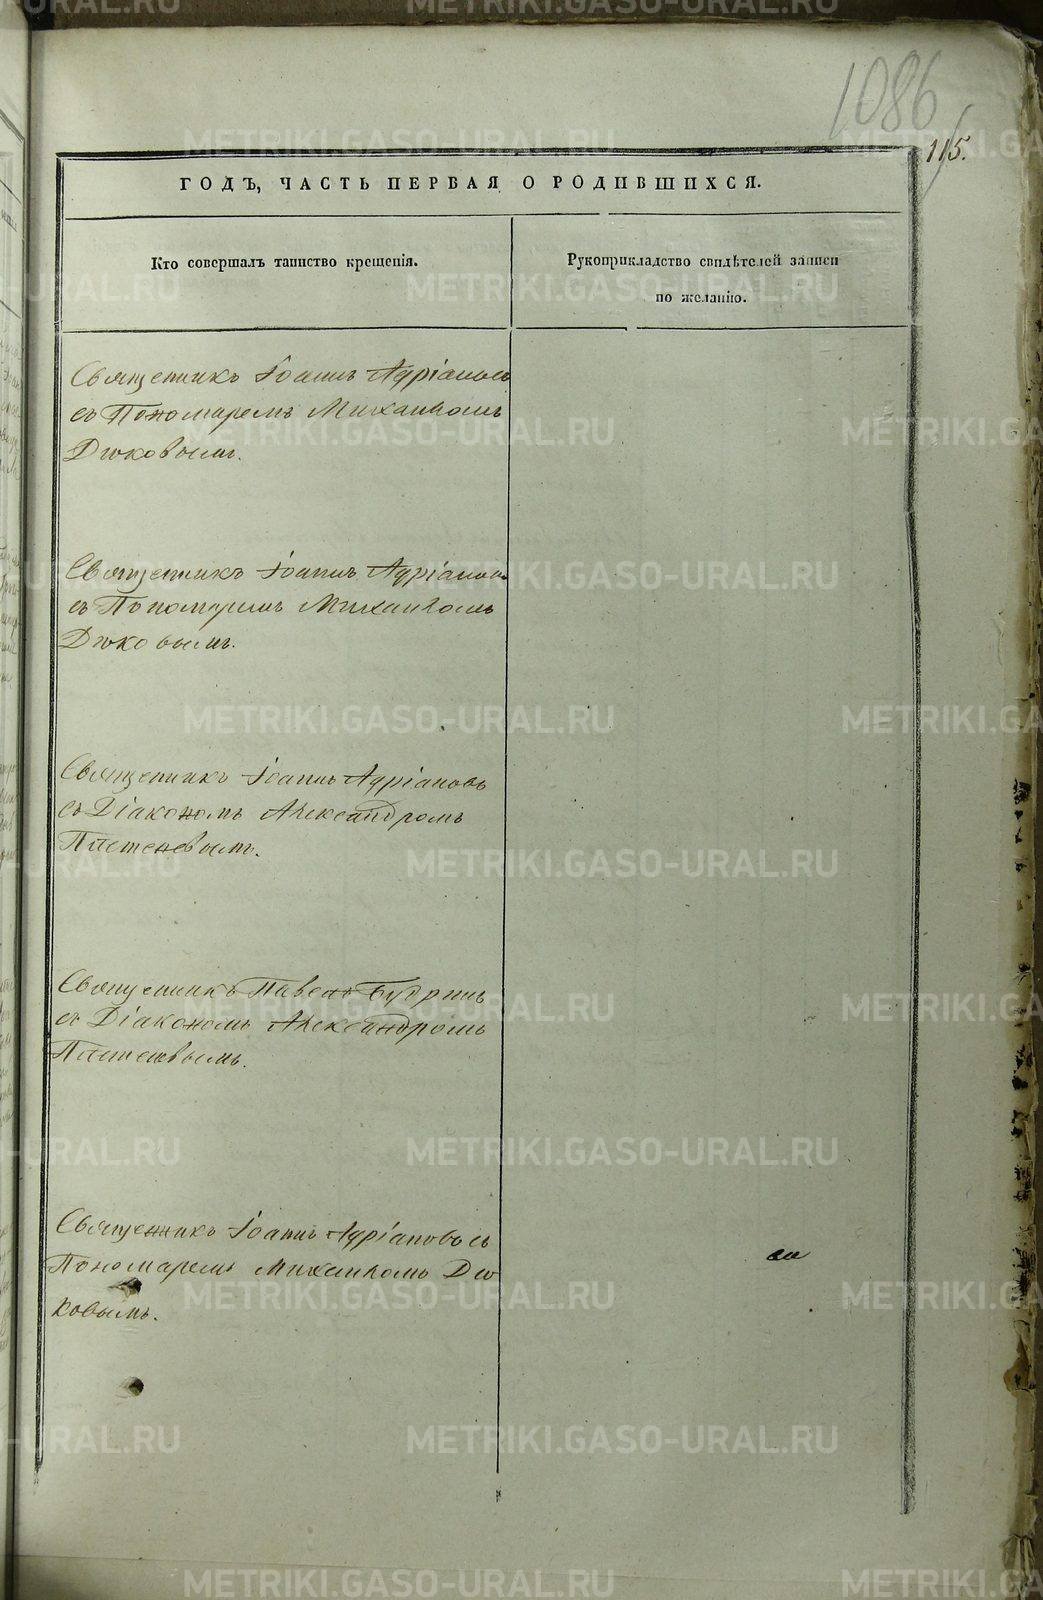 1086
115.
ГОДЪ, ЧАСТЬ ПЕРВАЯ О РОДИВШИХСЯ.
Кто совершалъ таинство крещенія.
Рукоприкладство свидѣтелей записи
по желанію.
Священникъ Іоаннъ Адріановъ
съ Пономаремъ Михаиломъ
Дюковымъ.
Священникъ Іоаннъ Адріановъ
съ Пономаремъ Михаиломъ
Дюковымъ.
Священникъ Іоаннъ Адріановъ
съ Діакономъ Александромъ
Священникъ Павелъ Будринъ
съ Діакономъ Александромъ
Священникъ Іоаннъ Адріановъ съ
Пономаремъ Михаиломъ Дю
ковымъ.
METRIKI.GASO-URAL.RU